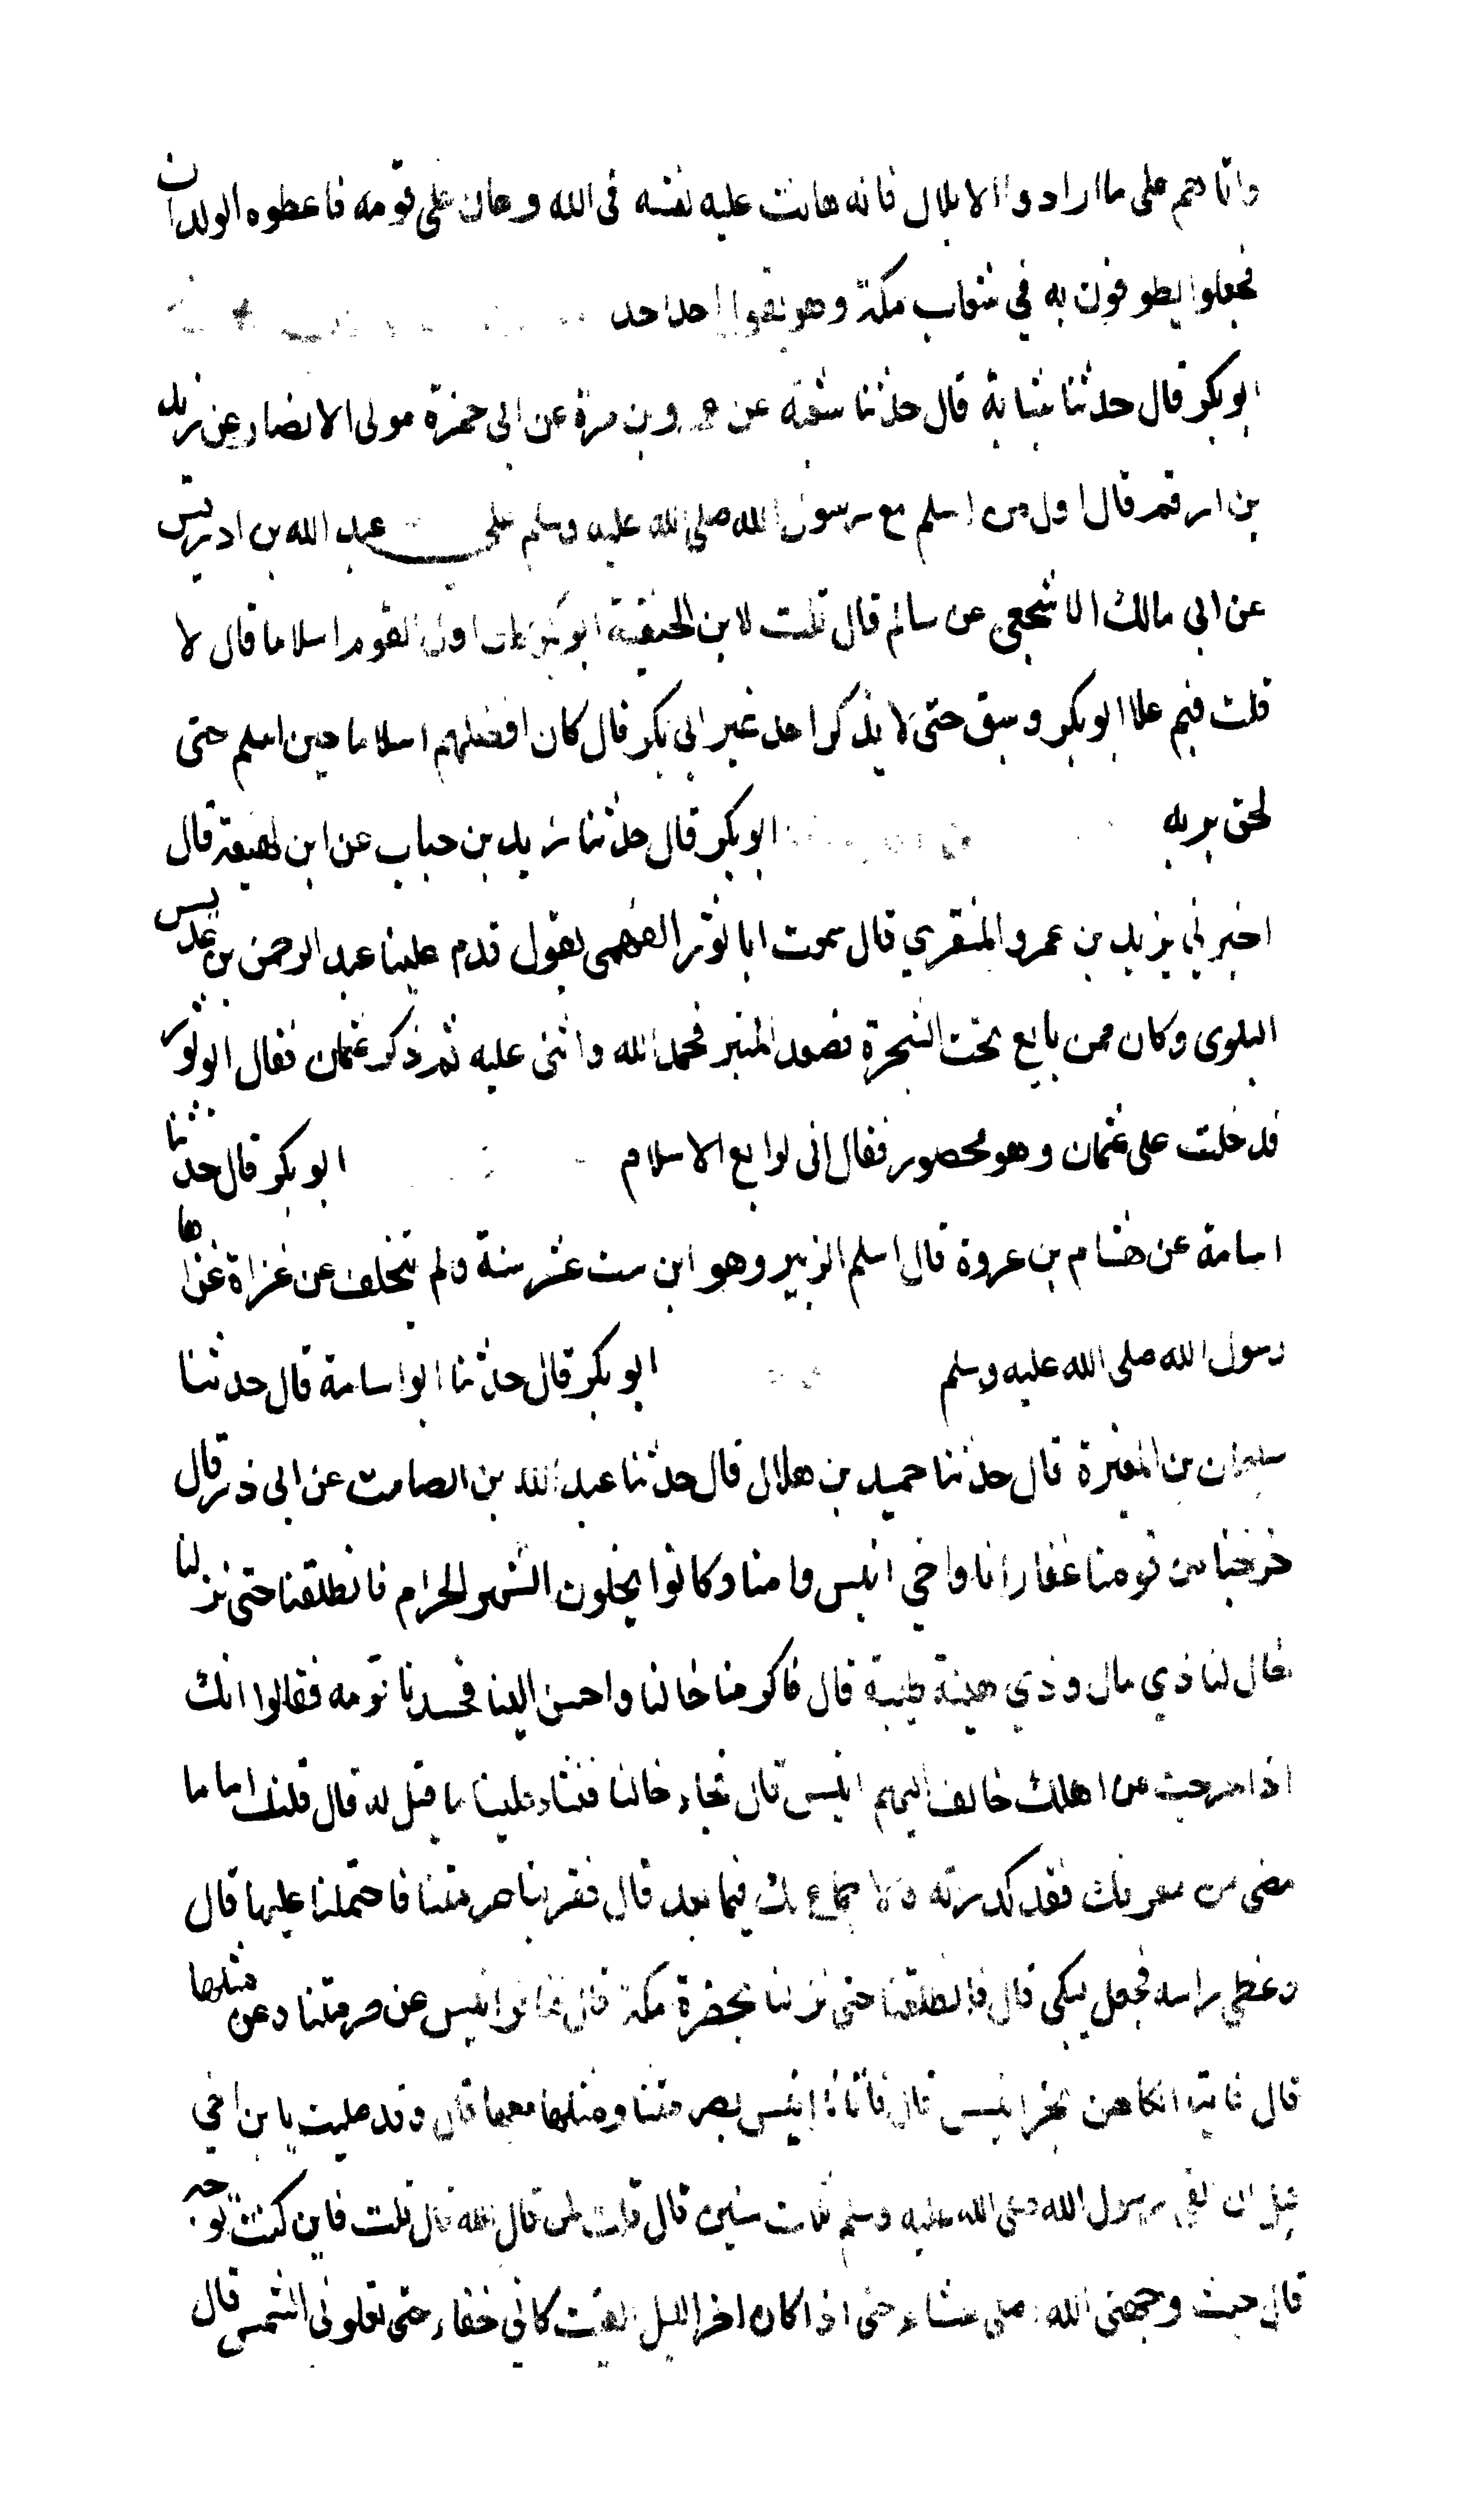 واتاهم على ما ارادوا الا بلال فانه هانت عليه نفسه فى الله وهان على قومه فاعطوه الولدان
فجعلوا يطوفون به في شعاب مكة وهو يقول احد احد
ابو بكر قال حدثنا شبابة قال حدثنا شعبة عن عمرو بن مرة عن ابى حمزة مولى الانصار عن زيد
بن ارقم قال اول من اسلم مع رسول الله صلى الله عليه وسلم على عبد الله بن ادريس
عن ابى مالك الاشجعى عن سالم قال قلت لابن الحنفية ابو بكر كان اول القوم اسلاما قال لا
قلت فبم علا ابو بكر وسبق حتى لا يذكر احد غير ابى بكر قال كان افضلهم اسلاما حين اسلم حتى
لحق بربه ابو بكر قال حدثنا زيد بن حباب عن ابن لهيعة قال
اخبرني يزيد بن عمرو المنقري قال سمعت ابا ثور الفهمى يقول قدم علينا عبد الرحمن بن عديس
البلوى وكان ممن بايع تحت الشجرة فصعد المنبر فحمد الله واثنى عليه ثم ذكر عثمان فقال ابو ثور
فدخلت على عثمان وهو محصور فقال انى لرابع الاسلام ابو بكر قال حدثنا
اسامة عن هشام بن عروة قال اسلم الزبير وهو ابن ست عشر سنة ولم يتخلف عن غزاة غزاها
رسول الله صلى الله عليه وسلم ابو بكر قال حدثنا ابو اسامة قال حدثنا
سليمان بن المغيرة قال حدثنا حميد بن هلال قال حدثنا عبد الله بن الصامت عن ابى ذر قال
خرجنا من قومنا غفار انا واخي انيس وامنا وكانوا يحلون الشهر الحرام فانطلقنا حتى نزلنا
خال لنا ذي مال وذي هيئة طيبة قال فاكرمنا خالنا واحسن الينا فحسدنا قومه فقالوا انك
اذا خرجت عن اهلك خالف اليهم انيس قال فجاء خالنا فنثا علينا ما قيل له قال قلت اما ما
مضى من معروفك فقد كدرته ولا جماع لك فيما بعد قال فقربنا صرمتنا فاحتملنا عليها قال
وغطى راسه فجعل يبكى قال فانطلقنا حتى نزلنا بحضرة مكة قال فنافر انيس عن صرمتنا وعن مثلها
قال فاتيا الكاهن فخير انيس قال فاتانا انيس بصرمتنا ومثلها معها قال وقد صليت يا بن اخي
قبل ان القى رسول الله صلى الله عليه وسلم ثلاث سنين قال قلت لمن قال لله قال قلت فاين كنت توجه
قال حيث وجهنى الله اصلى عشاء حتى اذا كان اخر الليل القيت كاني خفاء حتى تعلونى الشمس قال